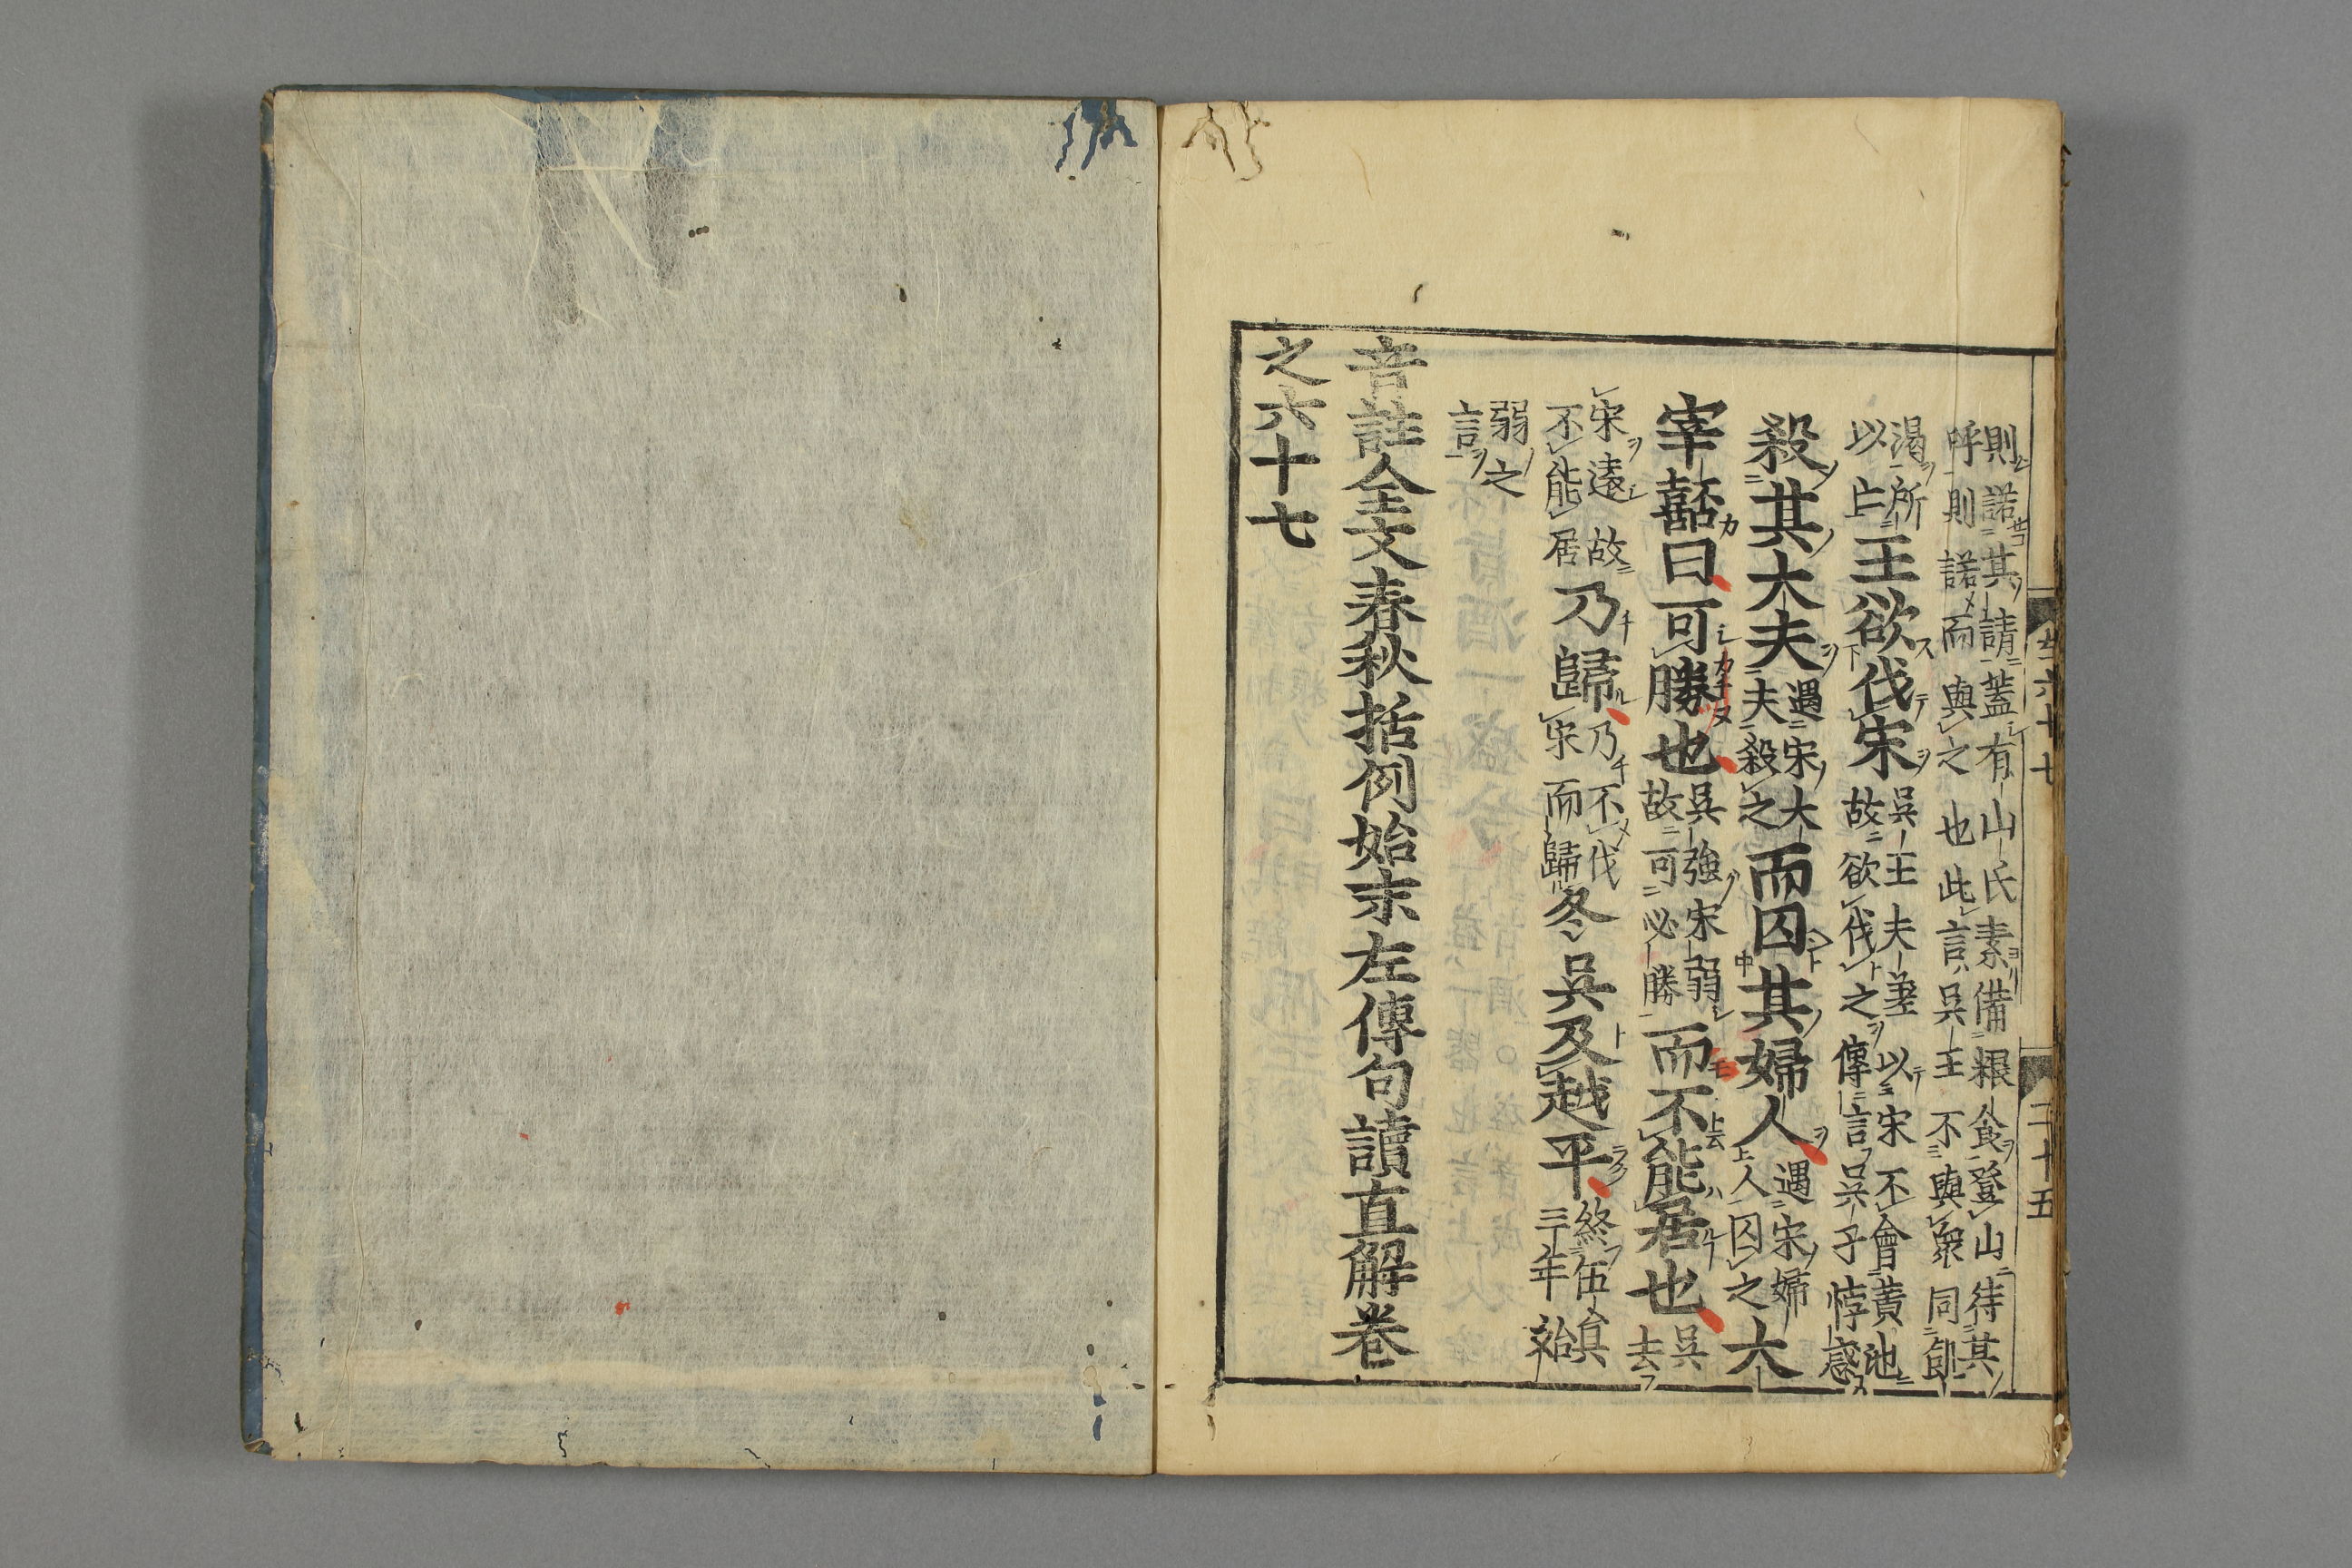 則諾其請蓋有山氏素備糧食登山待其
呼則諾而與之也此言吳王不與衆同飢
渴所
以亡王欲伐宋吳王夫差以宋不會黃池
故欲伐之傳言吳子悖惑
殺其大夫遇宋大
夫殺之而囚其婦人遇宋婦
人囚之大
宰嚭曰可勝也吳強宋弱
故可必勝而不能居也吳
去
宋遠故
不能居乃歸乃不伐
宋而歸冬吳及越平終伍員
三年始
弱之
言
音註全文春秋括例始末左傳句讀直解卷
之六十七
卷六十七
二十五